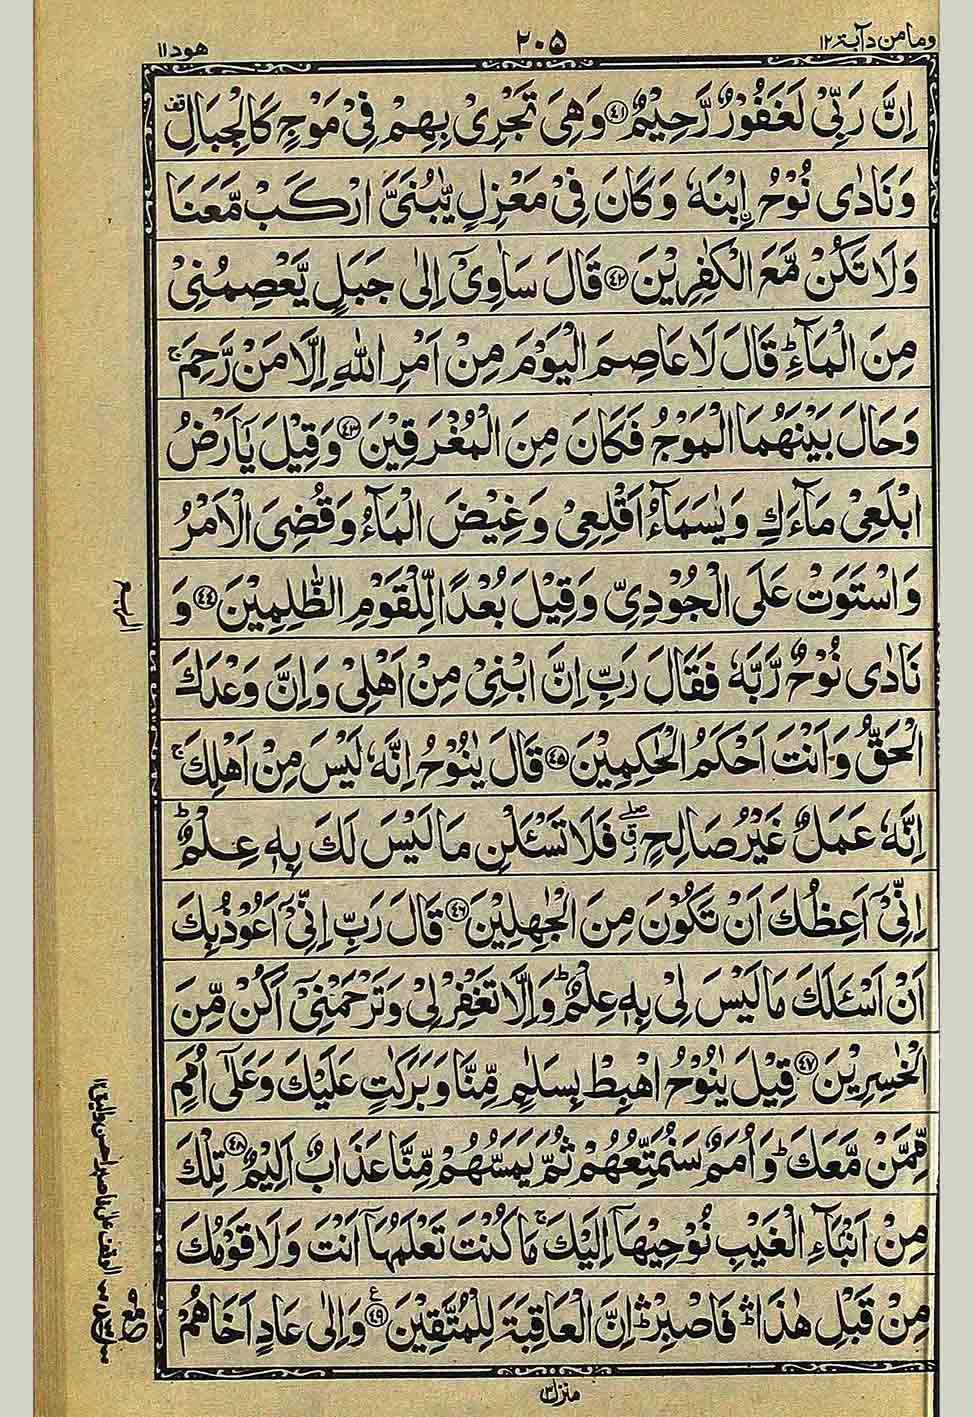 وما من دآبة ١٢
٢٠٥
هود ١١
اِنَّ رَبِّىْ لَغَفُوْرٌ رَّحِيْمٌ ﴿٤١﴾ وَهِىَ تَجْرِىْ بِهِمْ فِىْ مَوْجٍ كَالْجِبَالِ قف
وَنَادٰى نُوْحُ ࣙابْنَهٗ وَكَانَ فِىْ مَعْزِلٍ يّٰبُنَىَّ ارْكَبْ مَّعَنَا
وَلَا تَكُنْ مَّعَ الْكٰفِرِيْنَ ﴿٤٢﴾ قَالَ سَاٰوِىْۤ اِلٰى جَبَلٍ يَّعْصِمُنِىْ
مِنَ الْمَآءِ ؕ قَالَ لَا عَاصِمَ الْيَوْمَ مِنْ اَمْرِ اللّٰهِ اِلَّا مَنْ رَّحِمَ ۚ
وَحَالَ بَيْنَهُمَا الْمَوْجُ فَكَانَ مِنَ الْمُغْرَقِيْنَ ﴿٤٣﴾ وَقِيْلَ يٰۤاَرْضُ
ابْلَعِىْ مَآءَكِ وَيٰسَمَآءُ اَقْلِعِىْ وَغِيْضَ الْمَآءُ وَقُضِىَ الْاَمْرُ
وَاسْتَوَتْ عَلَى الْجُوْدِىِّ وَقِيْلَ بُعْدًا لِّلْقَوْمِ الظّٰلِمِيْنَ ﴿٤٤﴾ وَ
نَادٰى نُوْحٌ رَّبَّهٗ فَقَالَ رَبِّ اِنَّ ابْنِىْ مِنْ اَهْلِىْ وَاِنَّ وَعْدَكَ
الْحَقُّ وَاَنْتَ اَحْكَمُ الْحٰكِمِيْنَ ﴿٤٥﴾ قَالَ يٰنُوْحُ اِنَّهٗ لَيْسَ مِنْ اَهْلِكَ ۚ
اِنَّهٗ عَمَلٌ غَيْرُ صَالِحٍ ۖ فَلَا تَسْــَٔلْنِ مَا لَيْسَ لَكَ بِهٖ عِلْمٌ ؕ
اِنِّىْۤ اَعِظُكَ اَنْ تَكُوْنَ مِنَ الْجٰهِلِيْنَ ﴿٤٦﴾ قَالَ رَبِّ اِنِّىْۤ اَعُوْذُ بِكَ
اَنْ اَسْــَٔلَكَ مَا لَيْسَ لِىْ بِهٖ عِلْمٌ ؕ وَاِلَّا تَغْفِرْ لِىْ وَتَرْحَمْنِىْۤ اَكُنْ مِّنَ
الْخٰسِرِيْنَ ﴿٤٧﴾ قِيْلَ يٰنُوْحُ اهْبِطْ بِسَلٰمٍ مِّنَّا وَبَرَكٰتٍ عَلَيْكَ وَعَلٰٓى اُمَمٍ
مِّمَّنْ مَّعَكَ ؕ وَاُمَمٌ سَنُمَتِّعُهُمْ ثُمَّ يَمَسُّهُمْ مِّنَّا عَذَابٌ اَلِيْمٌ ﴿٤٨﴾ تِلْكَ
مِنْ اَنْۢبَآءِ الْغَيْبِ نُوْحِيْهَاۤ اِلَيْكَ ۚ مَا كُنْتَ تَعْلَمُهَاۤ اَنْتَ وَلَا قَوْمُكَ
مِنْ قَبْلِ هٰذَا ۛؕ فَاصْبِرْ ۛؕ اِنَّ الْعَاقِبَةَ لِلْمُتَّقِيْنَ ﴿٤٩﴾ وَاِلٰى عَادٍ اَخَاهُمْ
منزل ٣